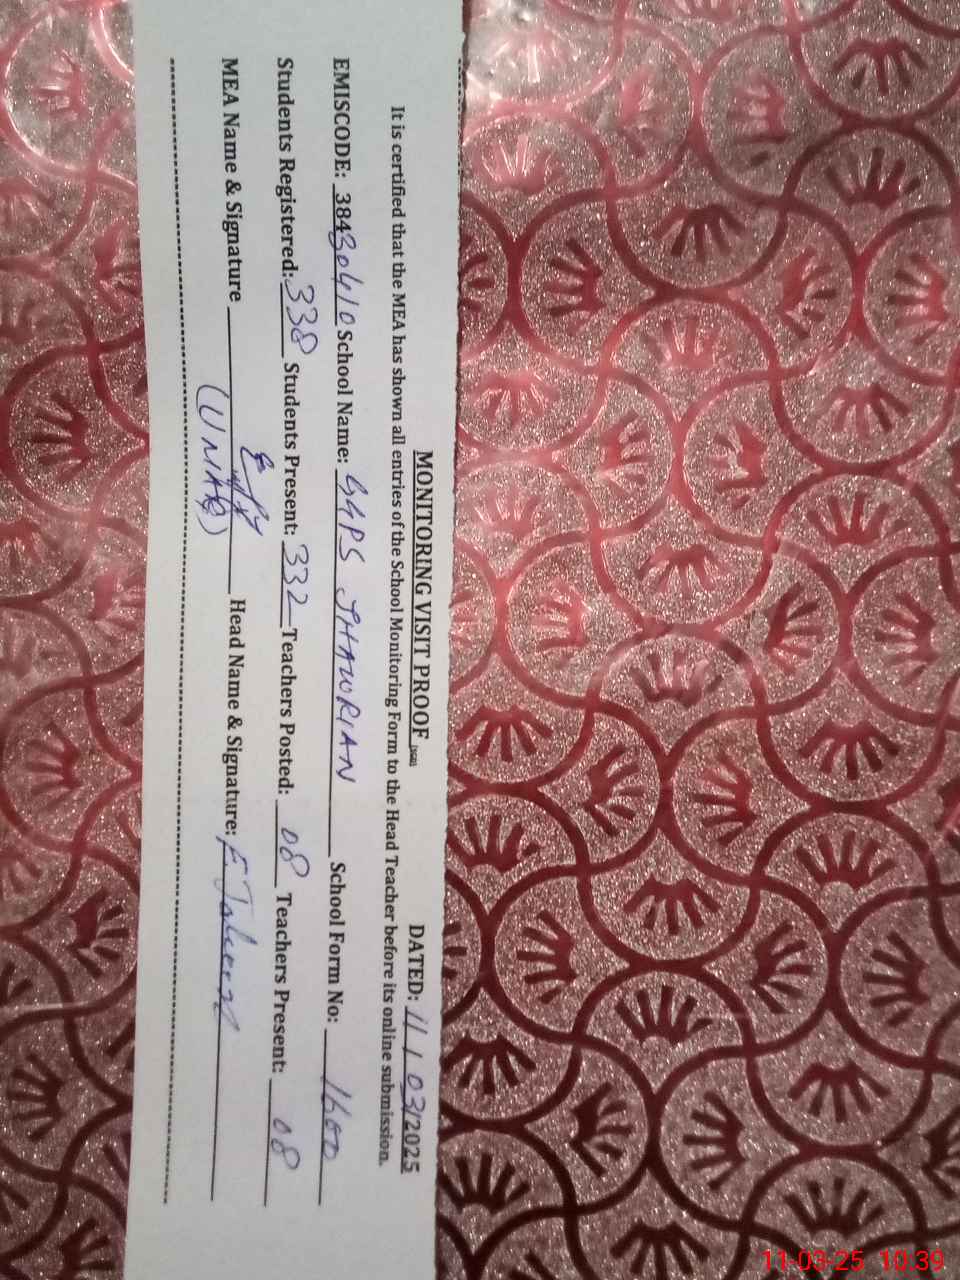 MONITORING VISIT PROOF DATED: 11/03/2025
It is certified that the MEA has shown all entries of the School Monitoring Form to the Head Teacher before its online submission.
EMISCODE: 38430410 School Name: GGPS JHAWRIAN School Form No: 1600
Students Registered: 338 Students Present: 332 Teachers Posted: 08 Teachers Present: 08
MEA Name & Signature Head Name & Signature:
(UMAR)
11-03-25 10:39